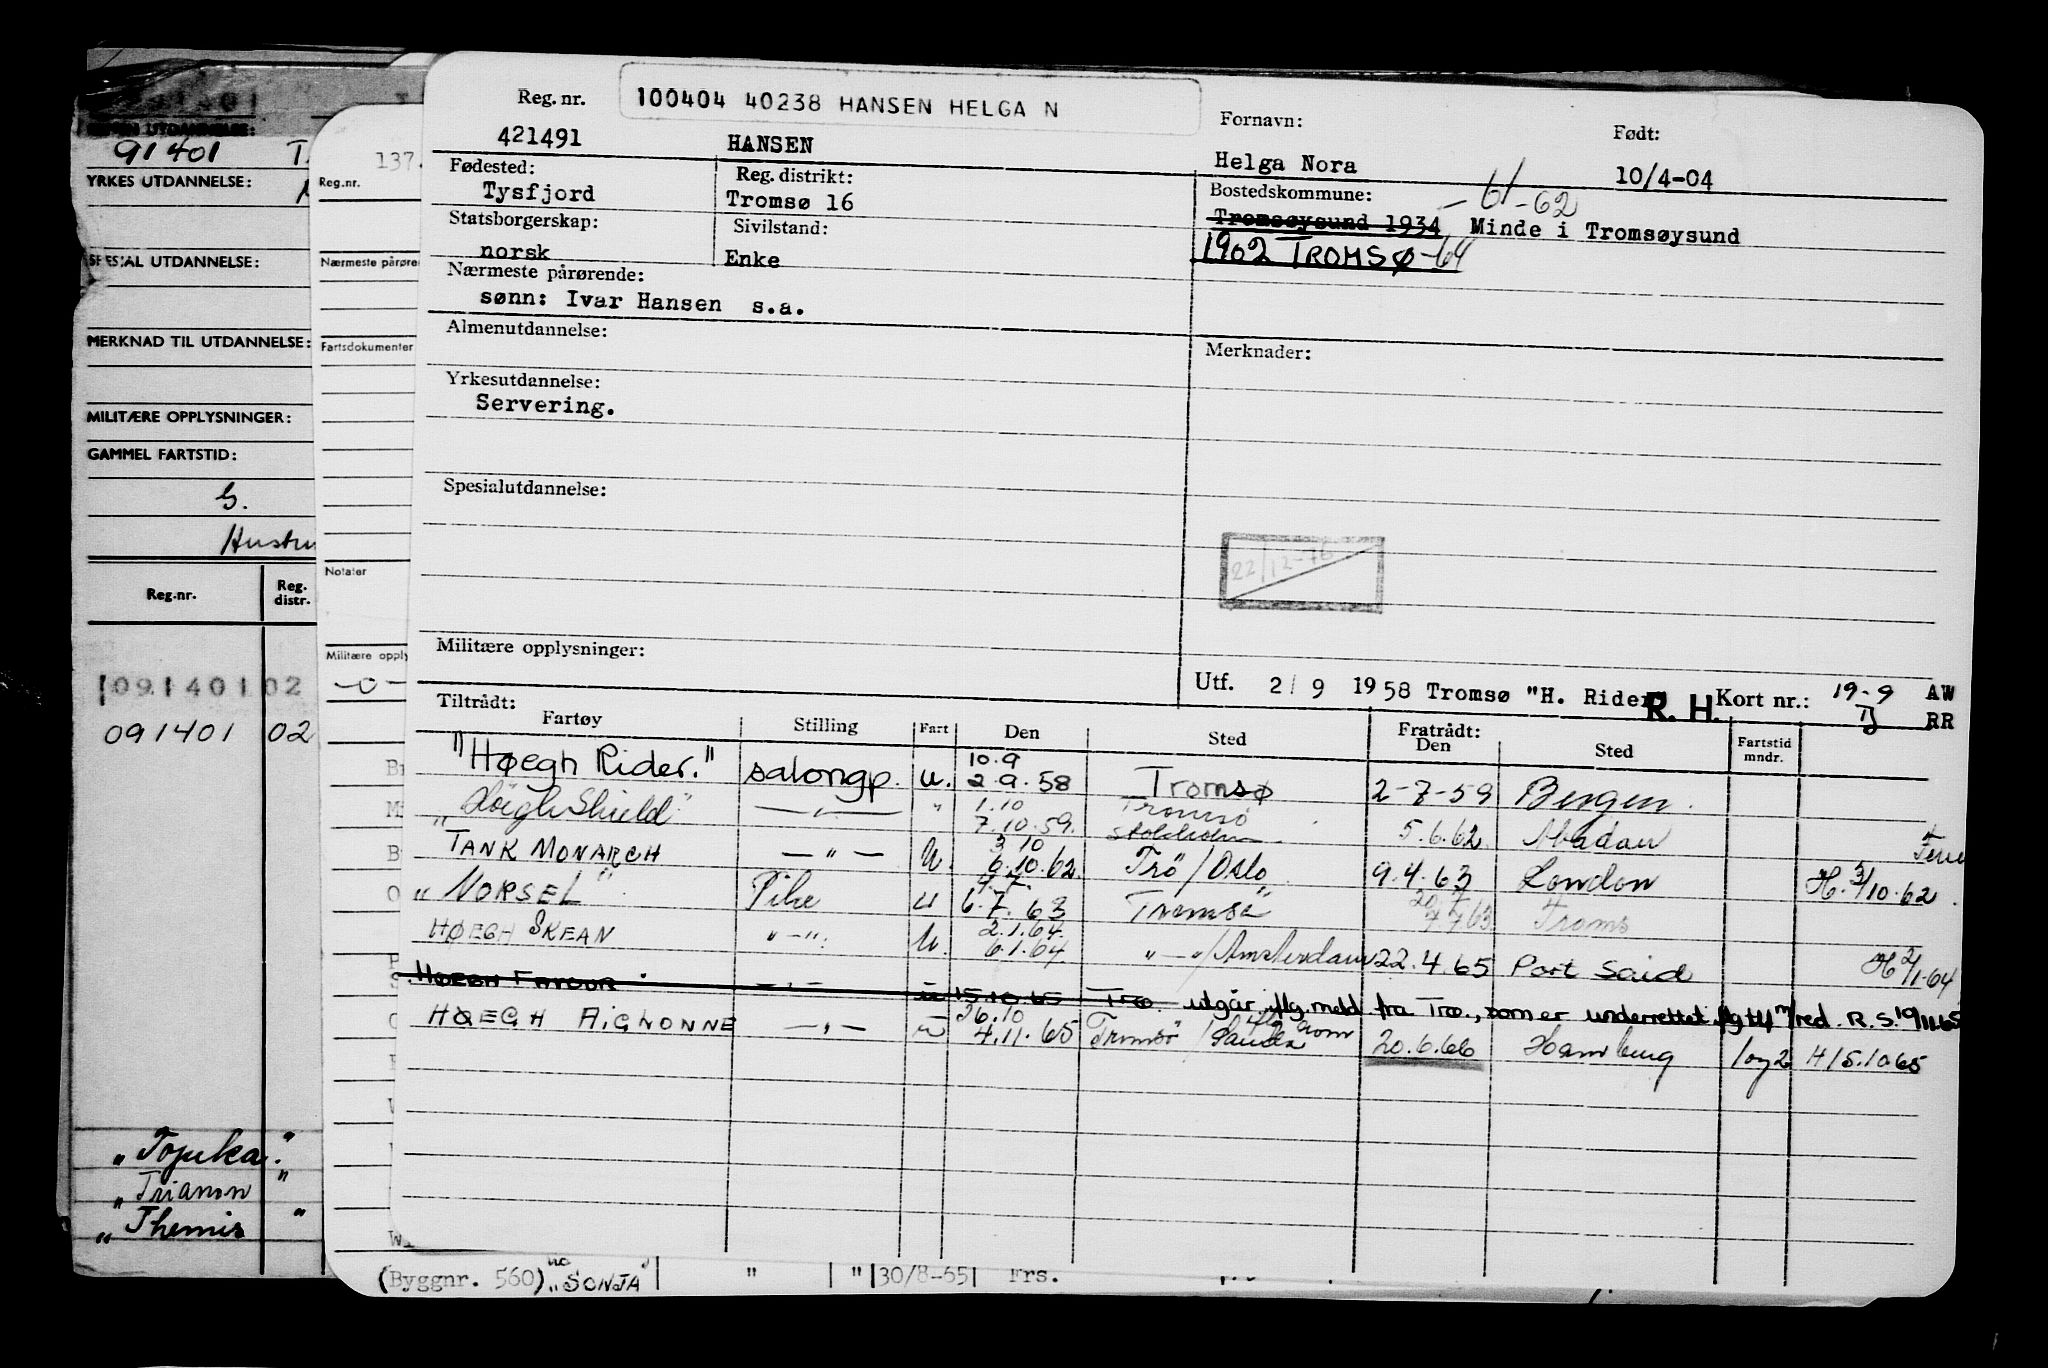 100404 40238 HANSEN HELGA N
Reg. nr. 421491
HANSEN
Fornavn: Helga Nora
Født: 10/4-04
Fødested: Tysfjord
Reg. distrikt: Tromsø 16
Bostedskommune: -61-62
Tromsøysund 1934 Minde i Tromsøysund
1902 TROMSØ-64
Statsborgerskap: norsk
Sivilstand: Enke
Nærmeste pårørende:
sønn: Ivar Hansen s.a.
Almenutdannelse:
Merknader:
Yrkesutdannelse:
Servering.
Spesialutdannelse:
22/12-76
Militære opplysninger:
Utf. 2/9 1958 Tromsø "H. Rider R. H. Kort nr.: 19-9 AW
RR
Tiltrådt:
Fartøy Stilling Fart Den Sted Fratrådt: Den Sted Fartstid mndr.
"Høegh Rider." salongp. u. 10.9 2.9.58 Tromsø 2-7-59 Bergen.
"Høegh Shield" —"— " 1.10 7.10.59. Tromsø Stockholm 5.6.62. Abadan Ferie
TANK MONARCH —"— u. 3 10 6.10.62. Trö/Oslo 9.4.63 London H. 3/10.62.
"NORSEL" Pike u 4.7. 6.7.63 Tromsö 20.7 63 Troms
HØEGH SKEAN "—" u. 2.1.64. 6.1.64. "—"/Amsterdam 22.4.65 Port Said H 2/1-64
HØEGH FAVOUR —"— u 15.10.65 Trø. utgår iflg. meld. fra Trø., som er underrettet R.S. 19/11.65
HØEGH AIGLONNE —"— u 26.10 4.11.65 Tromsö / Sauda 20.6.66 Hamburg 1 og 2 H/5.10 65
91401
YRKES UTDANNELSE:
SPESIAL UTDANNELSE:
MERKNAD TIL UTDANNELSE:
MILITÆRE OPPLYSNINGER:
GAMMEL FARTSTID:
G.
Hustru
Reg.-nr. Reg. distr.
091401 02
091401 02
"Topeka."
"Trianon"
"Themis"
137.
Reg.nr.
Nærmeste pårøre
Fartsdokumenter
Notater
Militære opply
—o—
(Byggnr. 560) "SONJA" " " 30/8-65 Frs.